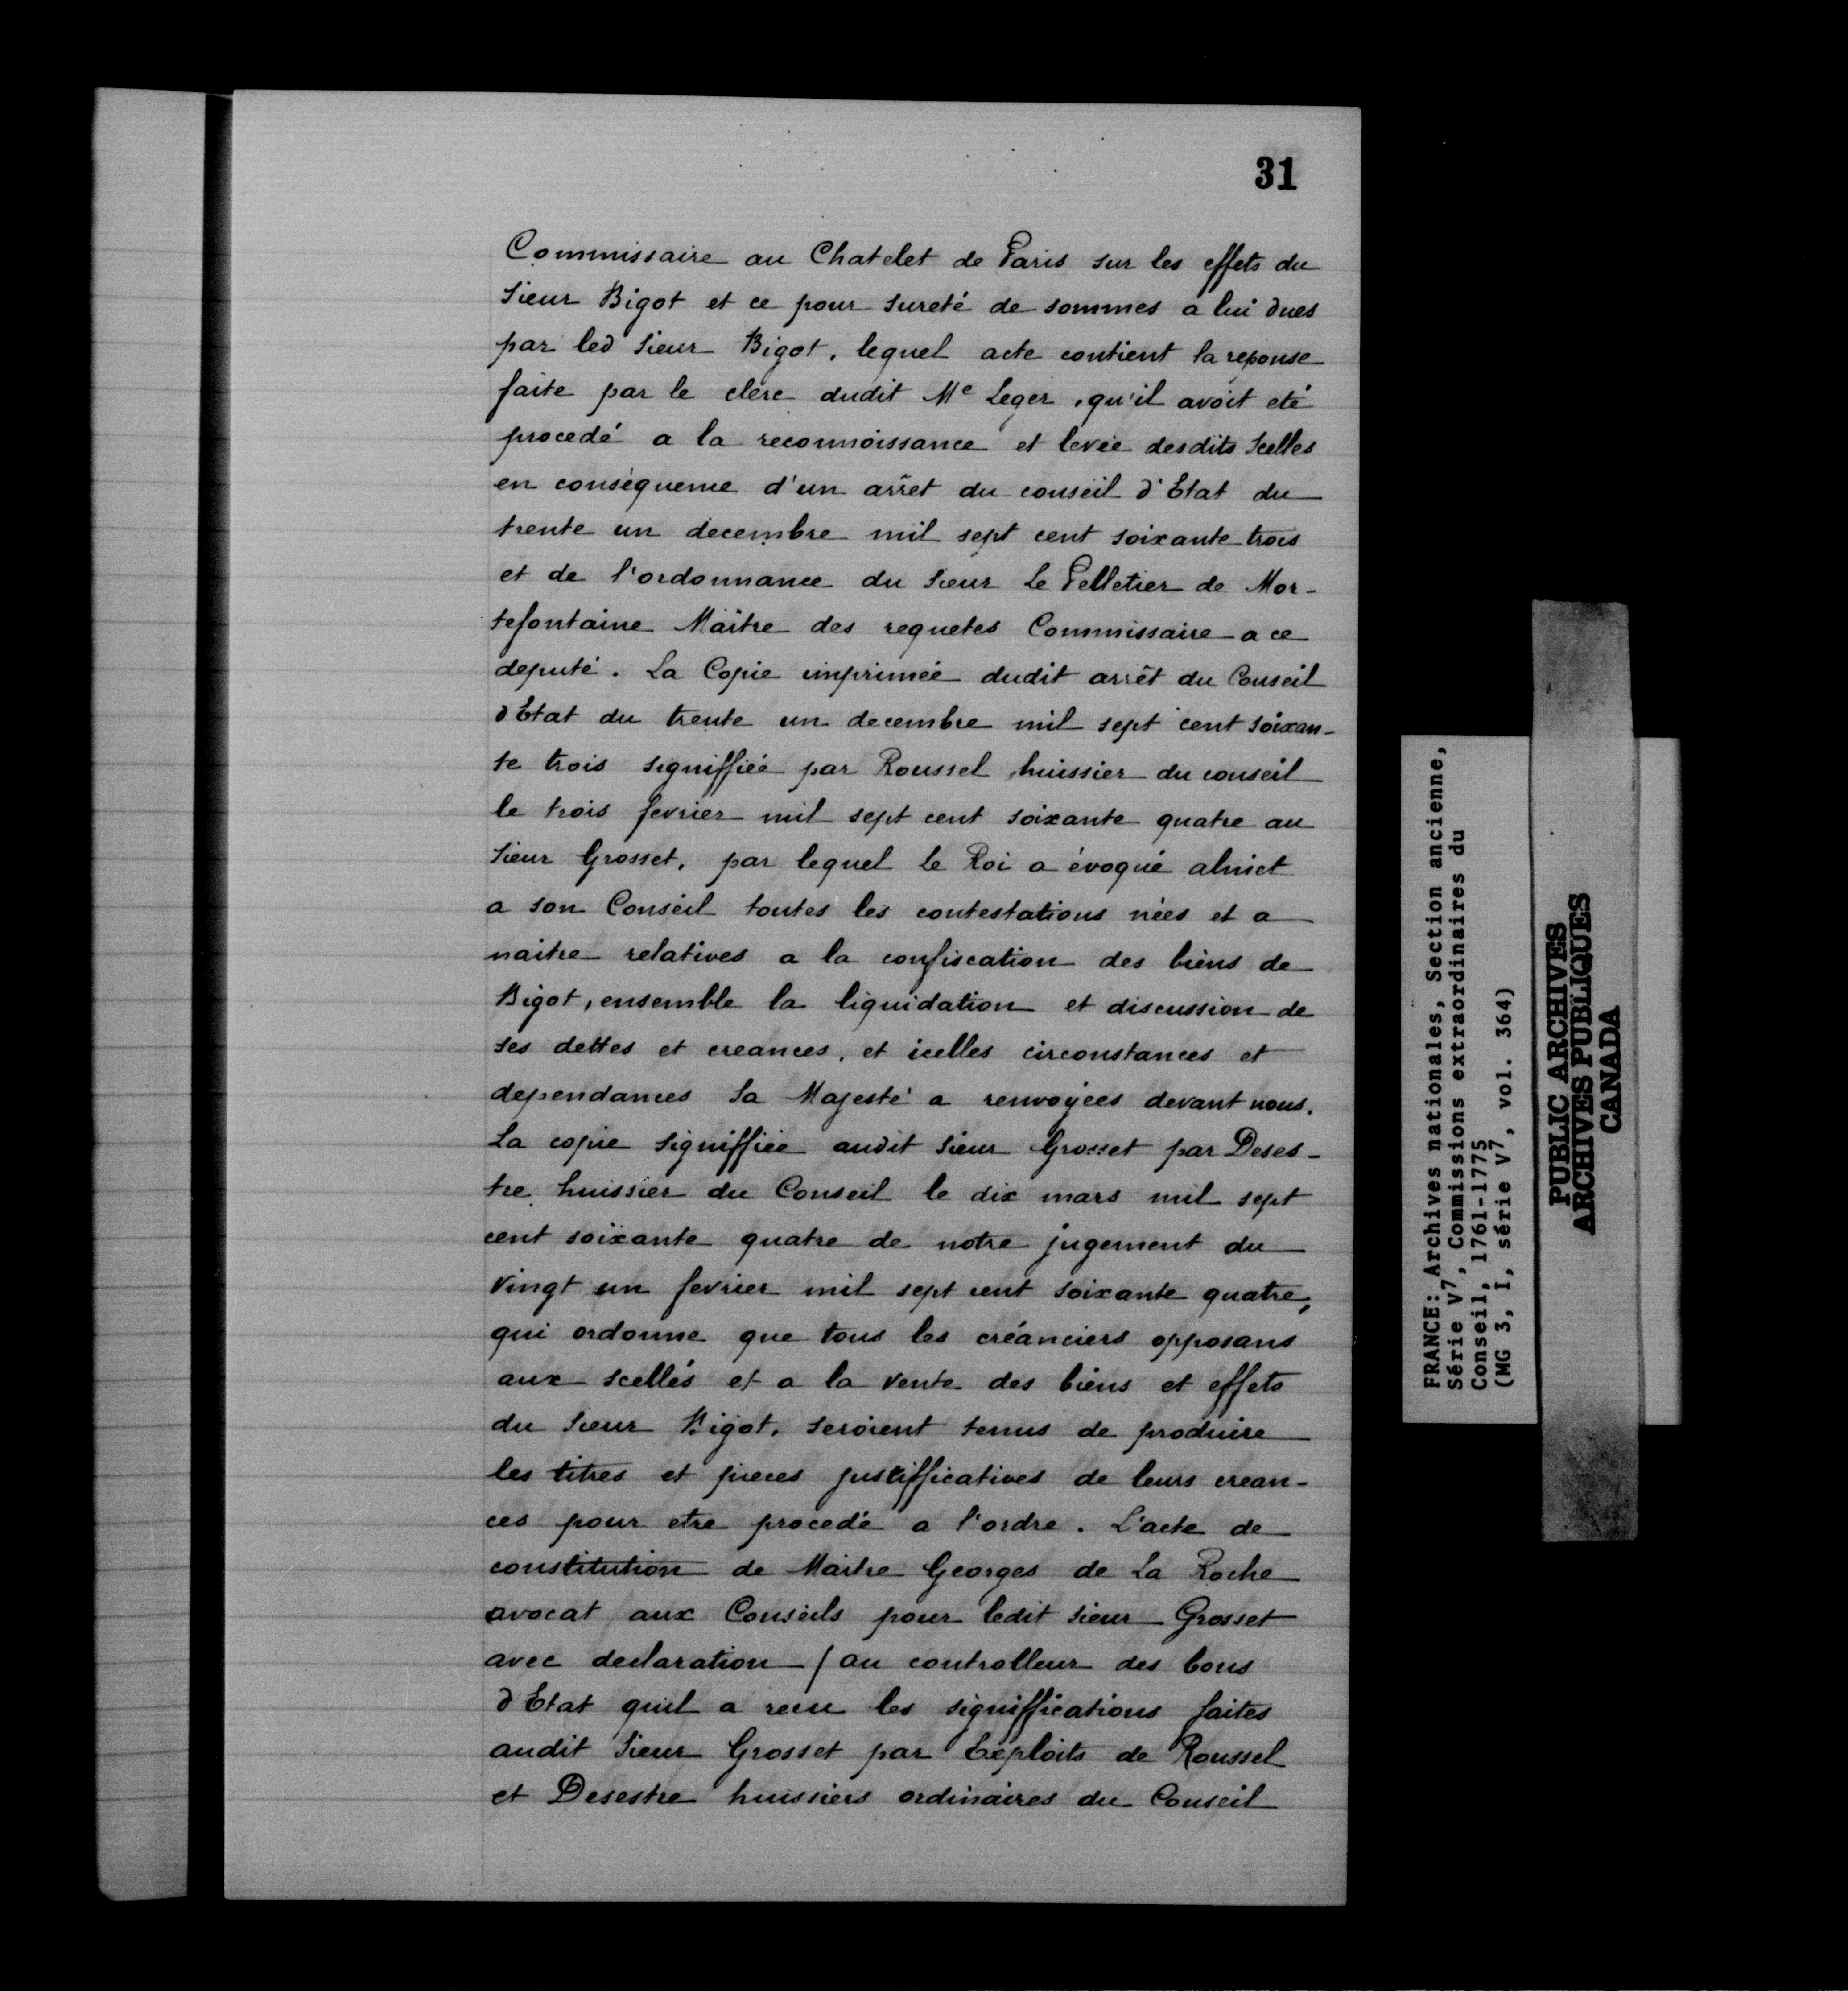 31
Commissaire au Chatelet de Paris sur les effets du
Sieur Bigot et ce pour sureté de sommes a lui dues
par led Sieur Bigot, lequel acte contient la reponse
faite par le clerc dudit Me Leger, qu'il avoit eté
procedé a la reconnoissance et levée desdits Scelles
en conséquence d'un arrêt du conseil d'Etat du
trente un decembre mil sept cent soixante trois
et de l'ordonnance du Sieur Le Pelletier de Mor-
tefontaine Maitre des requetes Commissaire a ce
deputé. La Copie imprimée dudit arrêt du Conseil
d'Etat du trente un decembre mil sept cent soixan-
te trois signiffiée par Roussel, huissier du conseil
le trois fevrier mil sept cent soixante quatre au
Sieur Grosset, par lequel le Roi a évoqué a
a son Conseil toutes les contestations nées et a
naitre relatives a la confiscation des biens de
Bigot, ensemble la liquidation et discussion de
ses dettes et creances, et icelles circonstances et
dependances Sa Majesté a renvoyées devant nous.
La copie signiffiée audit Sieur Grosset par Deses-
tre huissier du Conseil le dix mars mil sept
cent soixante quatre de notre jugement du
vingt un fevrier mil sept cent soixante quatre,
qui ordonne que tous les créanciers opposans
aux scellés et a la vente des biens et effets
du Sieur Bigot, seroient tenus de produire
les titres et pieces justifficatives de leurs crean-
ces pour etre procedé a l'ordre. L'acte de
constitution de Maitre Georges de La Roche
avocat aux Conseils pour ledit Sieur Grosset
avec declaration / au controlleur des bons
d'Etat quil a recu les signiffications faites
audit Sieur Grosset par Exploits de Roussel
et Desestre huissiers ordinaires du Conseil
FRANCE: Archives nationales, Section ancienne,
Série V7, Commissions extraordinaires du
Conseil, 1761-1775
(MG 3, I, série V7, vol. 364)
PUBLIC ARCHIVES
ARCHIVES PUBLIQUES
CANADA